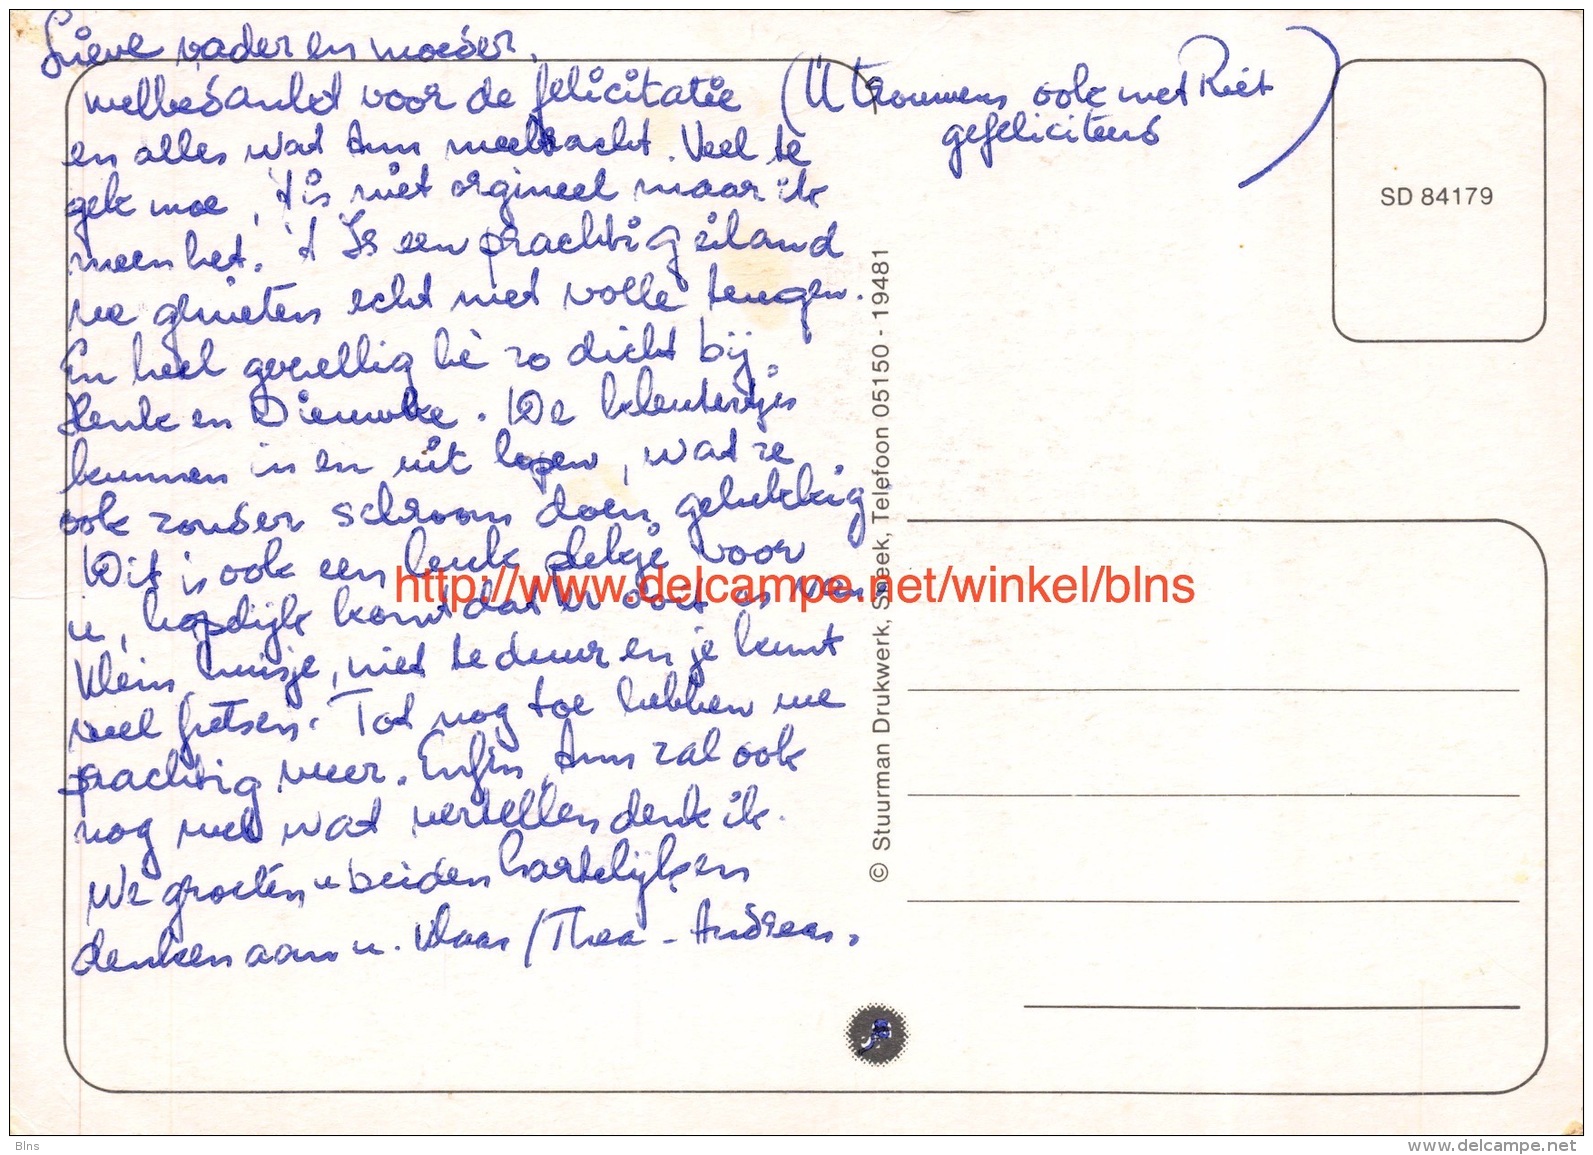 Lieve vader en moeder,
welbedankt voor de felicitatie
(U trouwens ook met Riet
gefeliciteerd)
en alles wat Ann meebracht. Veel te
gek moe, 't is niet orgineel maar ik
meen het. 't Is een prachtig eiland
we genieten echt met volle teugen.
En heel gezellig hè zo dicht bij
Henk en Dieuwke. De kleutertjes
kunnen in en uit lopen, wat ze
ook zonder schroom doen, gelukkig
Dit is ook een leuk plekje voor
u, hopelijk komt dat er ooit es van.
Klein huisje, niet te duur en je kunt
veel fietsen. Tot nog toe hebben we
prachtig weer. Enfin, Ann zal ook
nog wel wat vertellen denk ik.
We groeten u beiden hartelijk en
denken aan u. Klaas / Thea - Andreas.
SD 84179
© Sturman Drukwerk, Sneek, Telefoon 05150 - 19481
http://www.delcampe.net/winkel/blns
Blns
www.delcampe.net